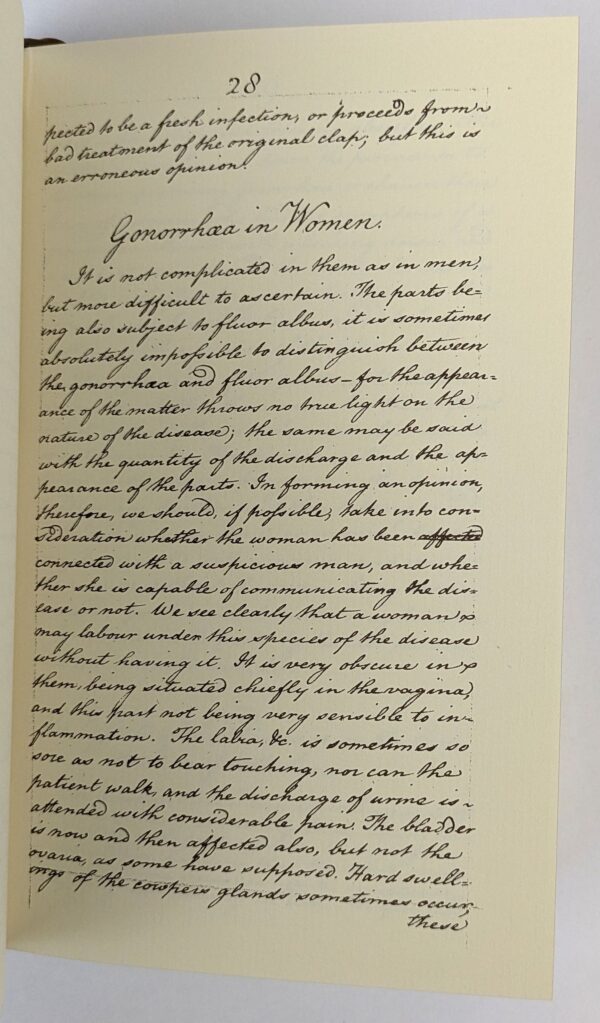 28
pected to be a fresh infection, or proceeds from
bad treatment of the original clap; but this is
an erroneous opinion.
Gonorrhœa in Women.
It is not complicated in them as in men,
but more difficult to ascertain. The parts be=
ing also subject to fluor albus, it is sometimes
absolutely impossible to distinguish between
the gonorrhœa and fluor albus – for the appear=
ance of the matter throws no true light on the
nature of the disease; the same may be said
with the quantity of the discharge and the ap=
pearance of the parts. In forming an opinion,
therefore, we should, if possible, take into con=
sideration whether the woman has been affected
connected with a suspicious man, and whe=
ther she is capable of communicating the dis=
ease or not. We see clearly that a woman
may labour under this species of the disease
without having it. It is very obscure in
them, being situated chiefly in the vagina,
and this part not being very sensible to in=
flammation. The labia, &c. is sometimes so
sore as not to bear touching, nor can the
patient walk, and the discharge of urine is
attended with considerable pain. The bladder
is now and then affected also, but not the
ovaria, as some have supposed. Hard swell=
ings of the cowpers glands sometimes occur,
these